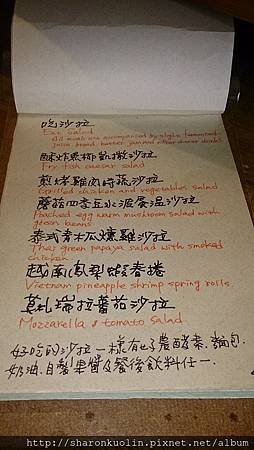 吃沙拉
Eat Salad
All meals are accompanied by style fermented
juice, bread, butter, jam and after dinner drinks
酥炸魚柳凱撒沙拉
Fry fish caesar salad
煎烤雞肉時蔬沙拉
Grilled chicken and vegetables salad
蘑菇四季豆水波蛋溫沙拉
Poached egg warm mushroom salad with
green beans
泰式青木瓜燻雞沙拉
Thai green papaya salad with smoked
chicken
越南鳳梨蝦春捲
Vietnam pineapple shrimp spring rolls
莫札瑞拉蕃茄沙拉
Mozzarella & tomato salad
好吃的沙拉一樣有包子農酵素.麵包.
奶油.自製果醬及餐後飲料任一.
http://sharonkuolin.pixnet.net/album